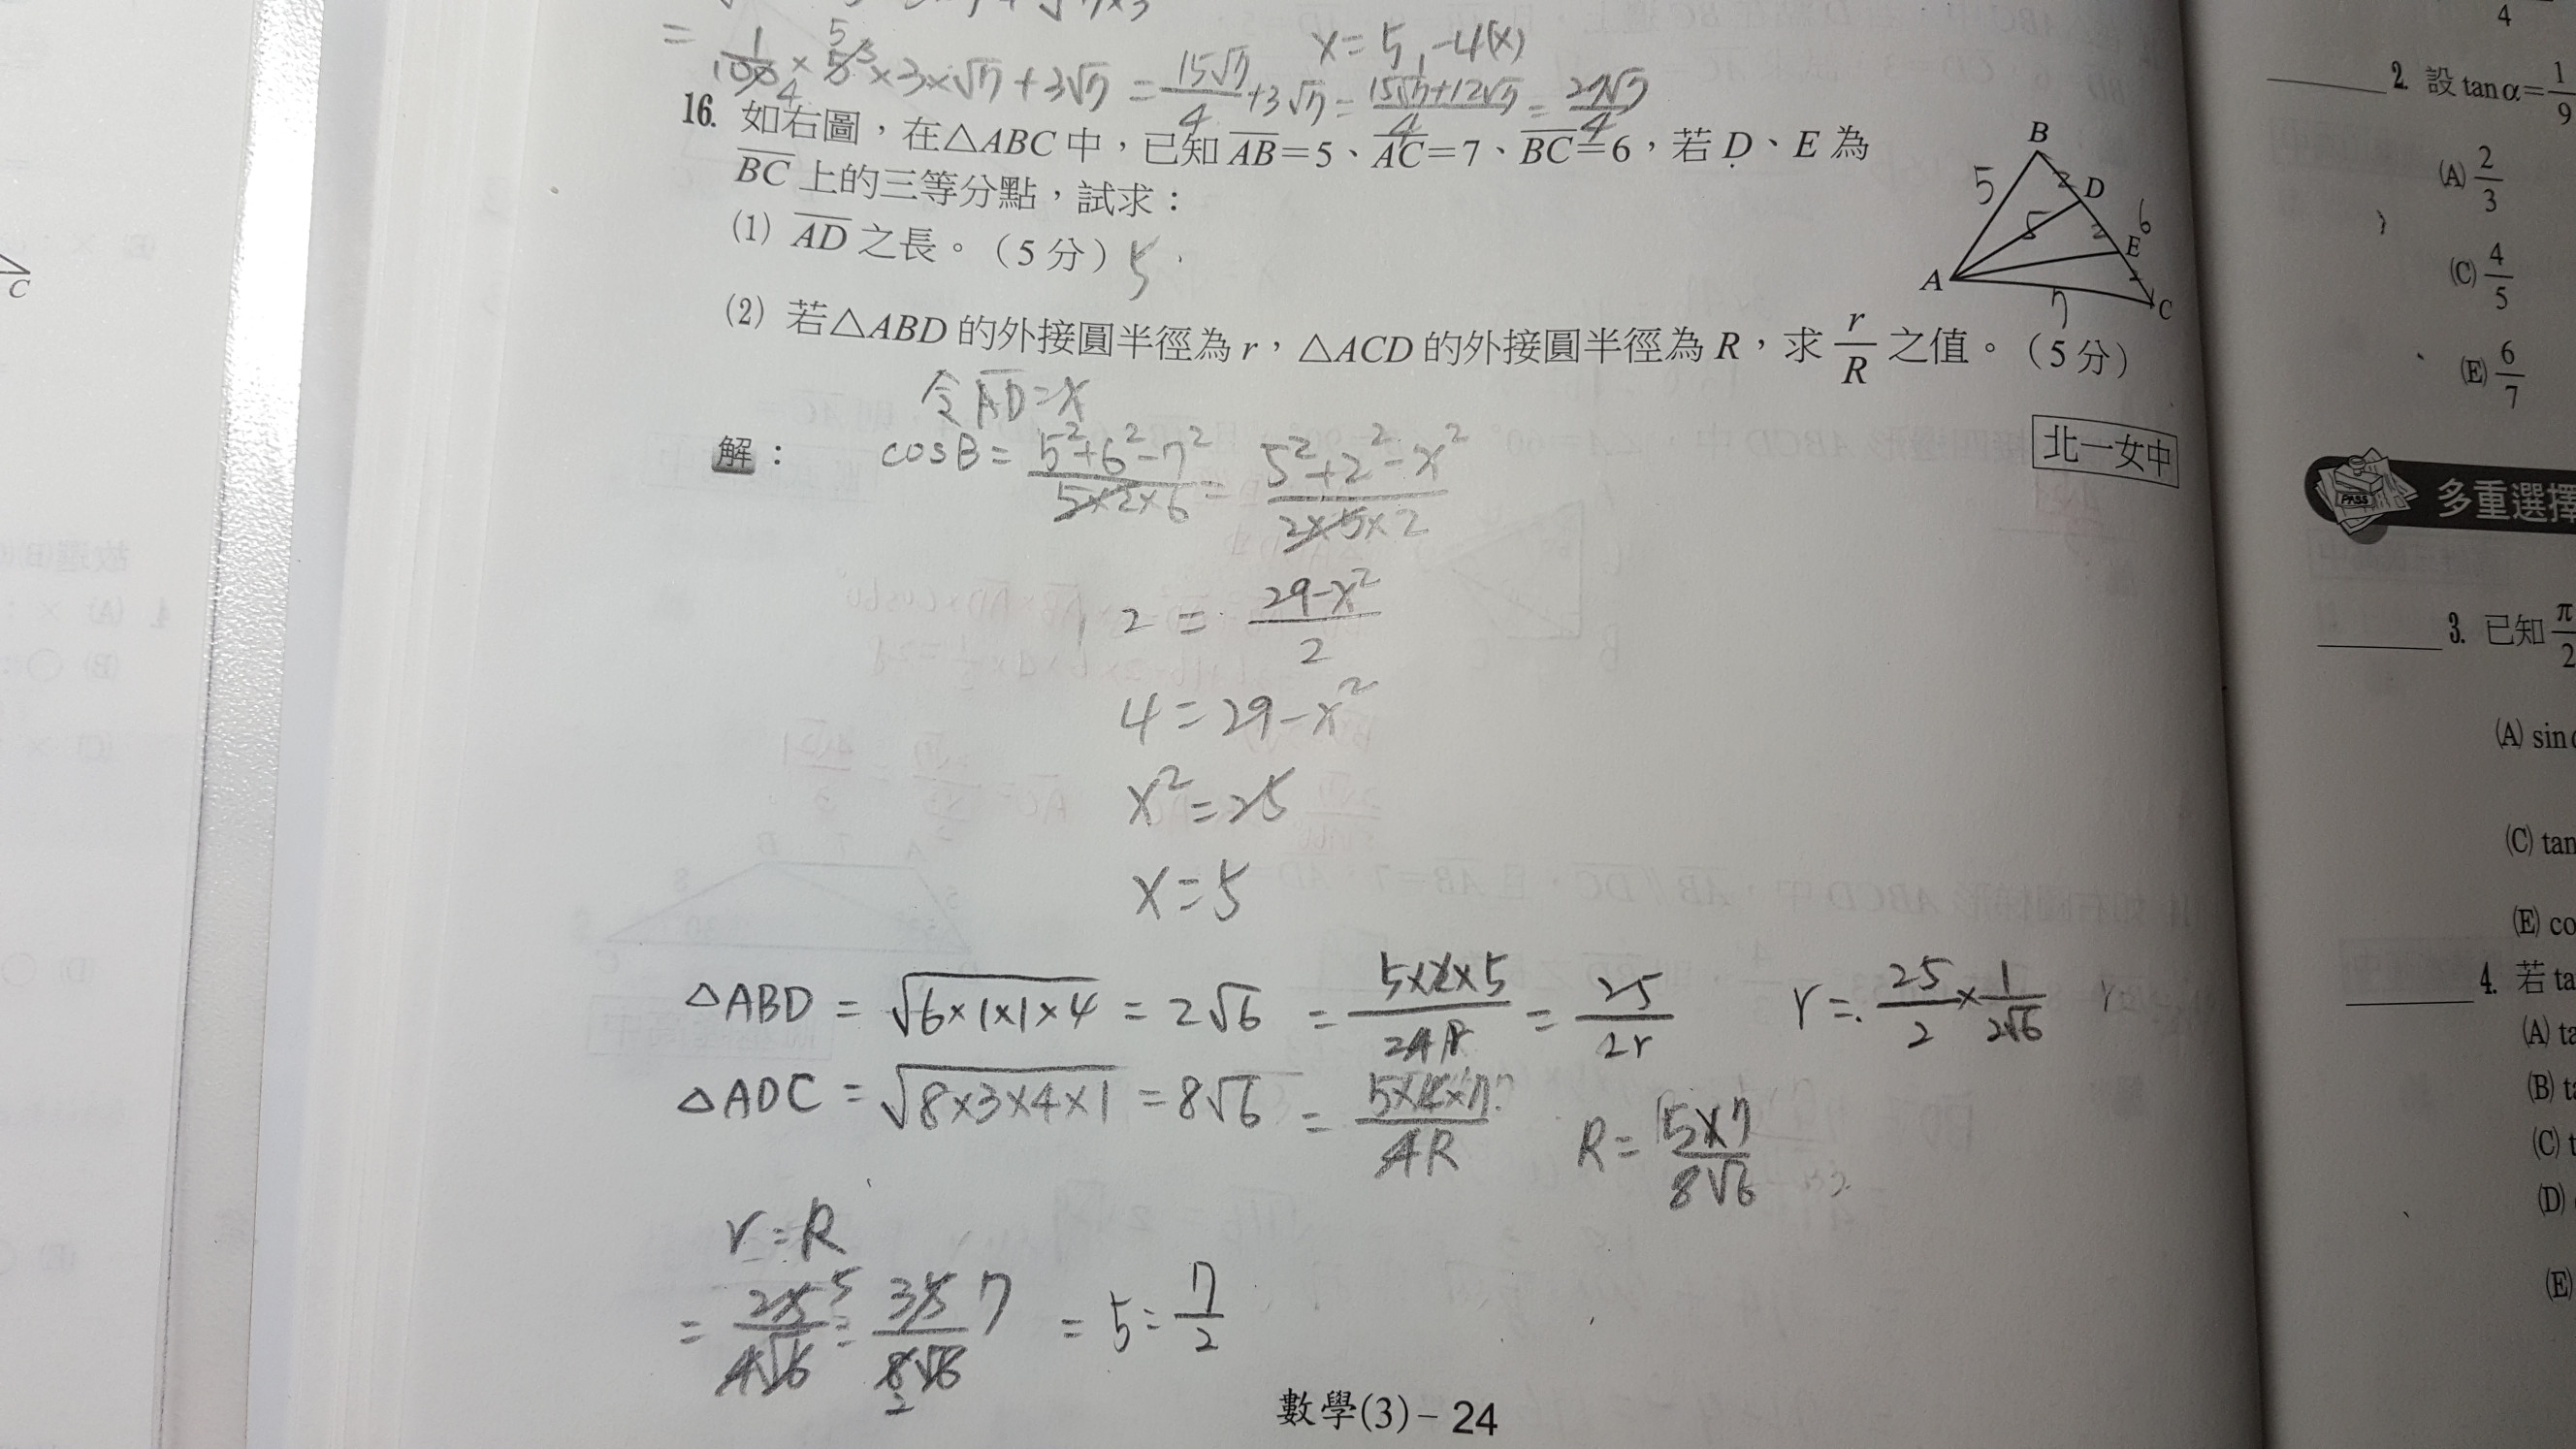 = 1/100 4 × 5 5 3 × 3 × √7 + 3√7 = 15√7/4 + 3√7 = 15√7+12√7/4 = 27√7/4
x = 5, -4(x)
16. 如右圖，在△ABC 中，已知 AB=5、AC=7、BC=6，若 D、E 為
BC 上的三等分點，試求：
(1) AD 之長。（5 分） 5
(2) 若△ABD 的外接圓半徑為 r，△ACD 的外接圓半徑為 R，求 r/R 之值。（5 分）
B
5 2 D
5 2 6
E
A 2
7 C
北一女中
令 AD = x
解： cosB = 5²+6²-7²/5×2×6 = 5²+2²-x²/2×5×2
2 = 29-x²/2
4 = 29-x²
x² = 25
x = 5
△ABD = √6×1×1×4 = 2√6 = 5×2×5/24R = 25/2r r = 25/2 × 1/2√6
△ADC = √8×3×4×1 = 8√6 = 5×4×7/4R R = 5×7/8√6
r : R
= 25 5/4√6 : 35 7/8√6 2 = 5 : 7/2
數學(3)－24
C
4
2. 設 tanα=1/9
(A) 2/3
(C) 4/5
(E) 6/7
PASS 多重選擇
3. 已知 π/2
(A) sin
(C) tan
(E) co
4. 若 ta
(A) ta
(B) ta
(C) t
(D)
(E)